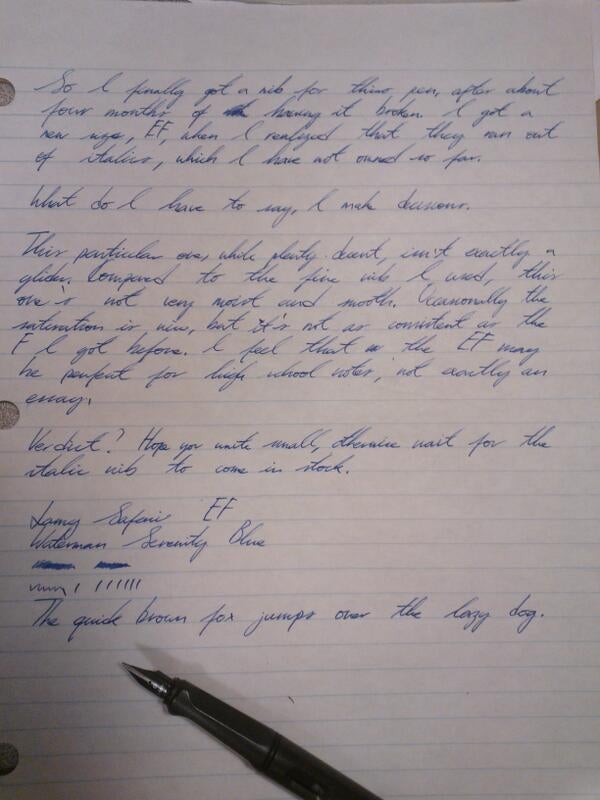 So I finally got a nib for this pen, after about
four months of having it broken. I got a
new size, EF, when I realized that they ran out
of italics, which I have not owned so far.
What do I have to say, I make decisions.
This particular one, while plenty decent, isn't exactly a
glider. Compared to the fine nib I used, this
one is not very moist and smooth. Occasionally the
saturation is nice, but it's not as consistent as the
F I got before. I feel that the EF may
be perfect for high school notes, not exactly an
essay.
Verdict? Hope you write small, otherwise wait for the
italic nib to come in stock.
Lamy Safari EF
Waterman Serenity Blue
The quick brown fox jumps over the lazy dog.